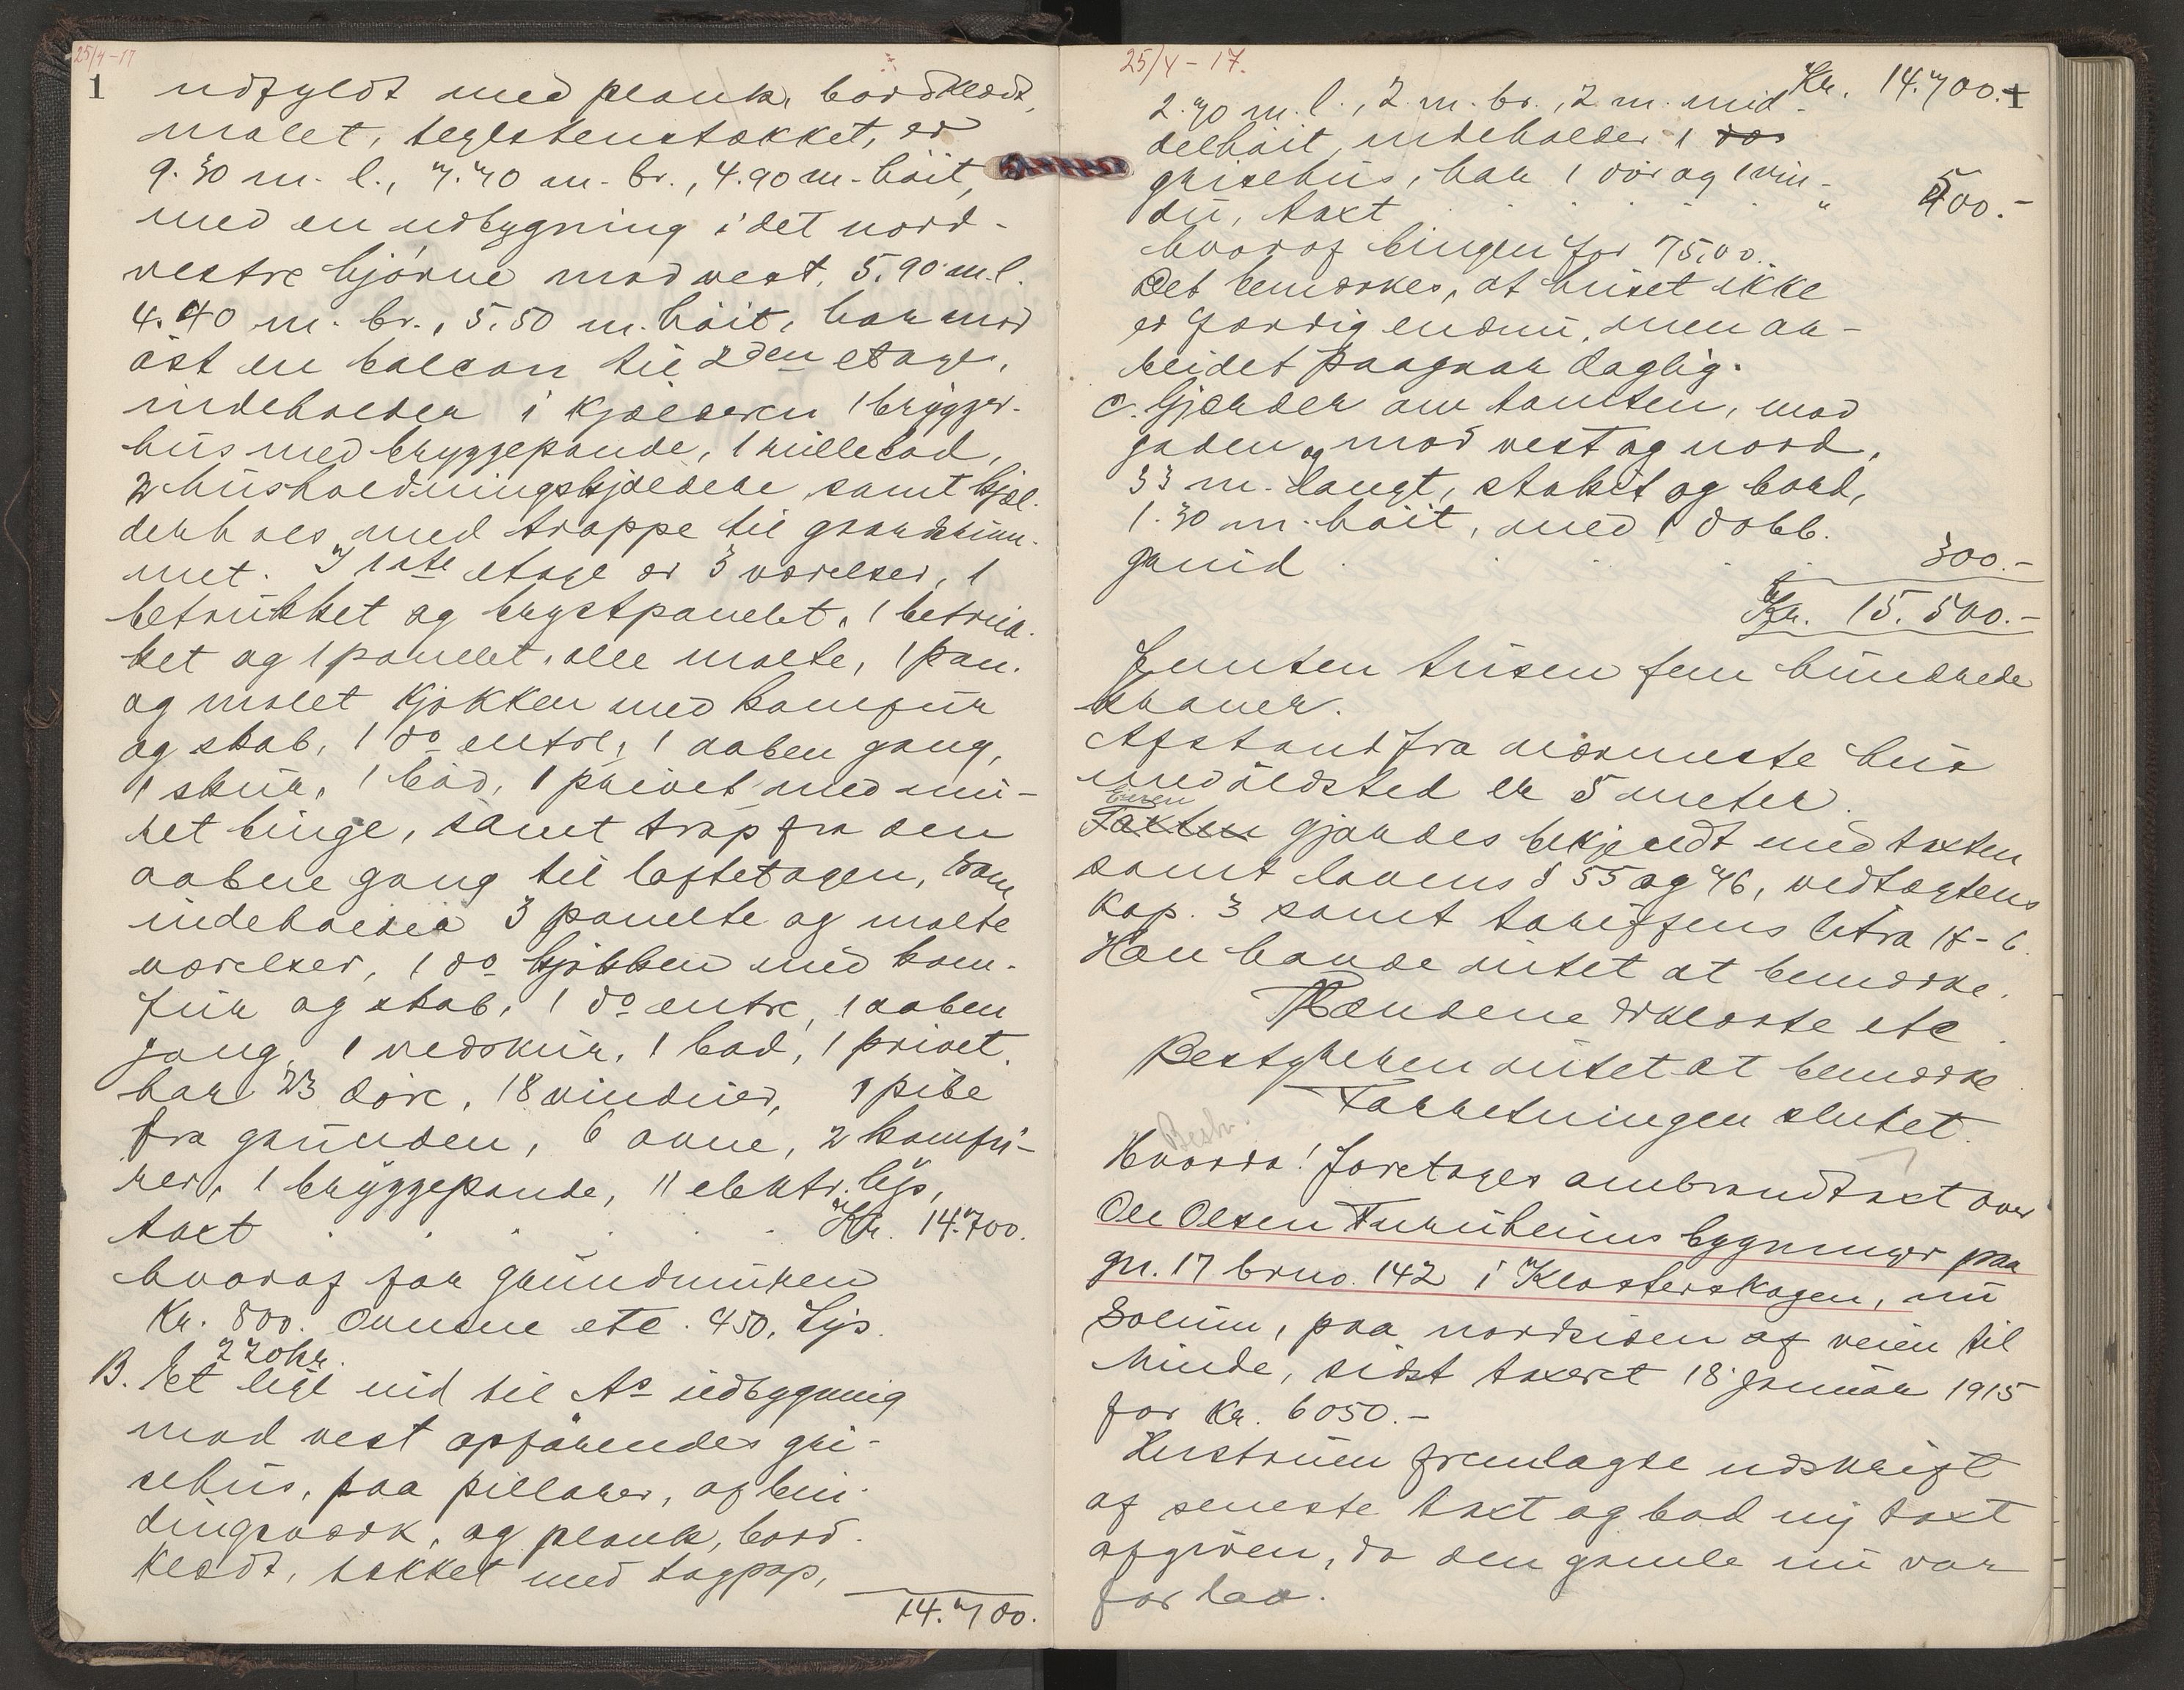 25/4-17
1
udfyldt med plank, bordklædt,
malet, teglstenstækket, er
9.30 m. l., 7.70 m. br., 4.90 m. høit,
med en udbygning i det nord-
vestre hjørne mod vest, 5.90 m. l.
4.40 m. br., 5.50 m. høit, har mod
øst en balcon til 2den etage,
indeholder i kjælderen 1 brygger-
hus med bryggepande, 1 rullebod,
2 husholdningskjældere samt kjæl-
derhals med trappe til gaardsrum-
met. I 1ste etage er 3 værelser, 1
betrukket og brystpanelet, 1 betruk-
ket og 1 panelet, alle malte, 1 pan.
og malet kjøkken med komfur
og skab, 1 do entre, 1 aaben gang,
1 skur, 1 bod, 1 privet med mu-
ret binge, samt trap fra den
aabne gang til loftetagen, som
indeholder 3 panelte og malte
værelser, 1 do kjøkken med kom-
fur og skab, 1 do entre, 1 aaben
gang, 1 vedskur, 1 bod, 1 privet.
har 23 døre, 18 vinduer, 1 pibe
fra grunden, 6 ovne, 2 komfu-
rer, 1 bryggepande, 11 elektr. lys,
taxt . . . . . Kr. 14.700.
hvoraf for grundmuren
Kr. 800. Ovnene etc. 450. Lys
220 kr.
B. Et lige ind til As udbygning
mod vest opførendes gri-
sehus, paa pillarer, af bin-
dingsværk, og plank, bord-
klædt, tækket med tagpap,
14.700.
25/4-17.
Kr. 14.700.-
1
2.70 m. l., 2. m. br., 2 m. mid-
delhøit, indeholder 1 dør
grisehus, har 1 dør og 1 vin-
du, taxt . . . . . " 500.-
hvoraf bingen for 75,00.
Det bemærkes, at huset ikke
er færdig endnu, men ar-
beidet paagaar daglig.
C. Gjærder om tomten, mod
gaden og mod vest og nord,
33 m. langt, stakit og bord,
1.30 m. høit, med 1 dobb.
grind . . . . 300.-
Kr. 15.500.-
Femten tusen fem hundrede
kroner.
Afstand fra nærmeste hus
med ildsted er 5 meter.
Eieren
Taxten gjordes bekjendt med taxten
samt lovens § 55 og 76, vedtægtens
kap. 3 samt tariffens litra 1f-6.
Han havde intet at bemærke.
Mændene erklærte etc.
Bestyreren intet at bemærke.
Forretningen sluttet.
Bestr.
Hvorda! foretoges ombrandtaxt over
Ole Olsen Furuheims bygninger paa
gn. 17 brno. 142 i Klosterskogen, nu
Solum, paa nordsiden af veien til
Minde, sidst taxeret 18 januar 1915
for Kr. 6050.-
Hustruen fremlagte udskrift
af seneste taxt og bad ny taxt
afgiven, da den gamle nu var
for lav.